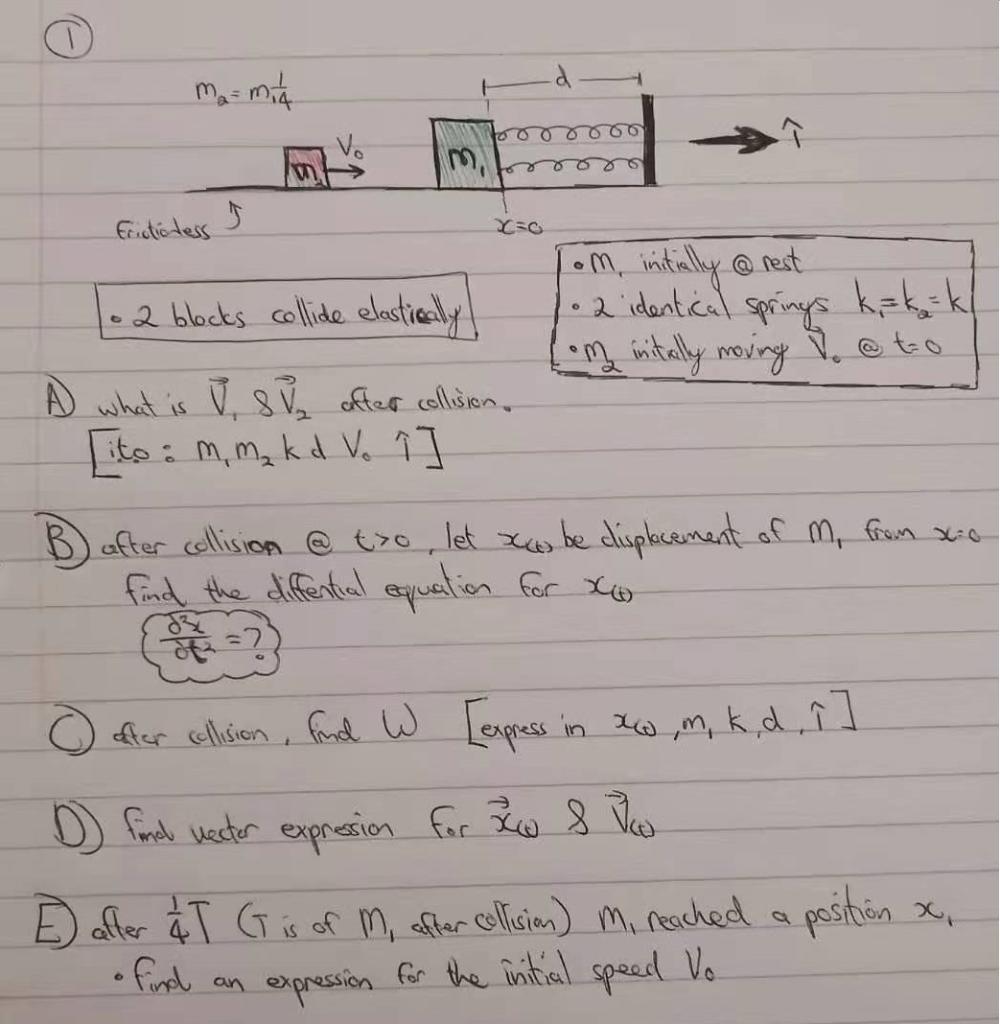 ①
m₂ = m₁¼
d
V₀
m₂
m₁
î
frictionless
x=0
• 2 blocks collide elastically
• m₁ initially @ rest
• 2 identical springs k₁=k₂=k
• m₂ initially moving V⃗₀ @ t=0
A) what is V⃗₁ & V⃗₂ after collision.
[ito: m₁ m₂ k d V₀ î]
B) after collision @ t>0, let x(t) be displacement of m₁ from x=0
find the diffential equation for x(t)
∂²x/∂t² = ?
C) after collision, find ω [express in x(t), m, k, d, î]
D) find vector expression for x⃗(t) & V⃗(t)
E) after ¼T (T is of m₁ after collision) m₁ reached a position x₁
• find an expression for the initial speed V₀